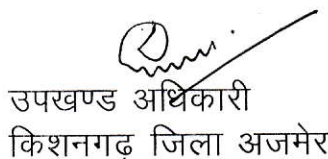 उपखण्ड अधिकारी
किशनगढ़ जिला अजमेर